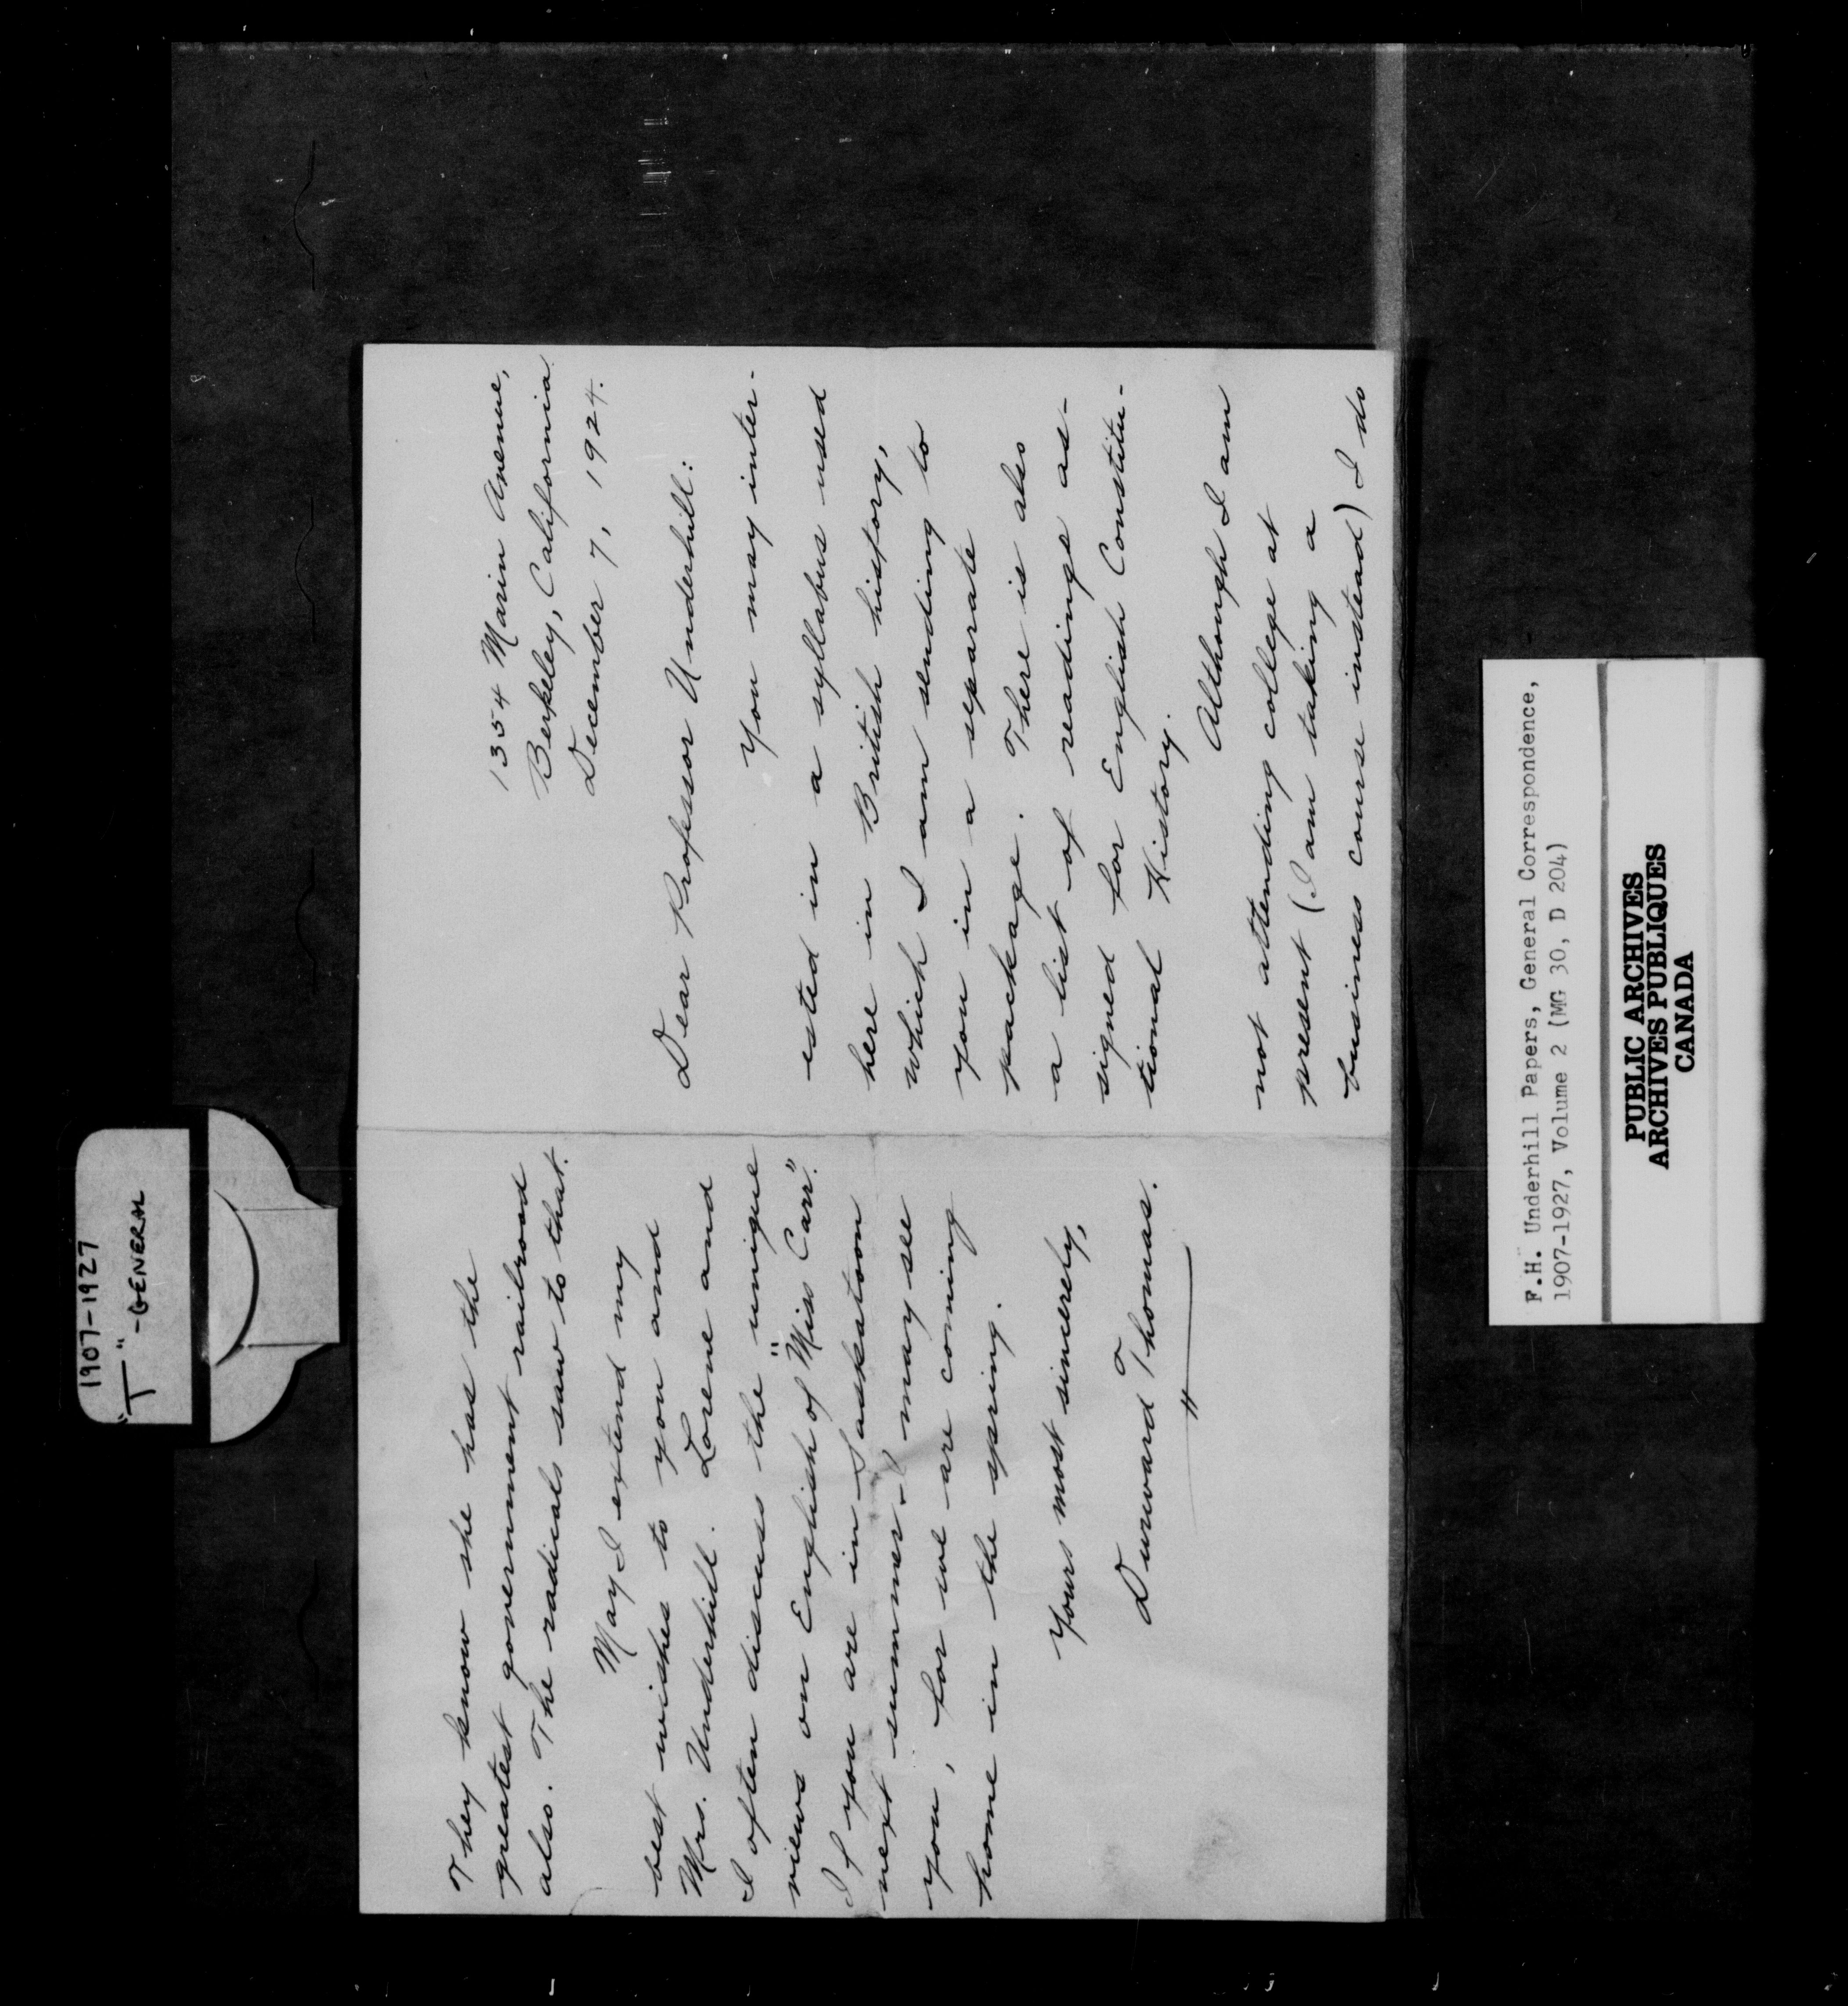 1907-1927
"T" - GENERAL
They know she has the
greatest government railroad
also. The radicals saw to that.
May I extend my
best wishes to you and
Mrs. Underhill. Lorene and
I often discuss the "unique
views on English of Miss Carr."
If you are in Saskatoon
next summer I may see
you, for we are coming
home in the spring.
Yours most sincerely,
Durward Thomas.
1354 Marin Avenue,
Berkeley, California
December 7, 1924.
Dear Professor Underhill:
You may inter-
ested in a syllabus used
here in British history,
which I am sending to
you in a separate
package. There is also
a list of readings as-
signed for English Constitu-
tional History.
Although I am
not attending college at
present (I am taking a
business course instead) I do
F.H. Underhill Papers, General Correspondence,
1907-1927, Volume 2 (MG 30, D 204)
PUBLIC ARCHIVES
ARCHIVES PUBLIQUES
CANADA